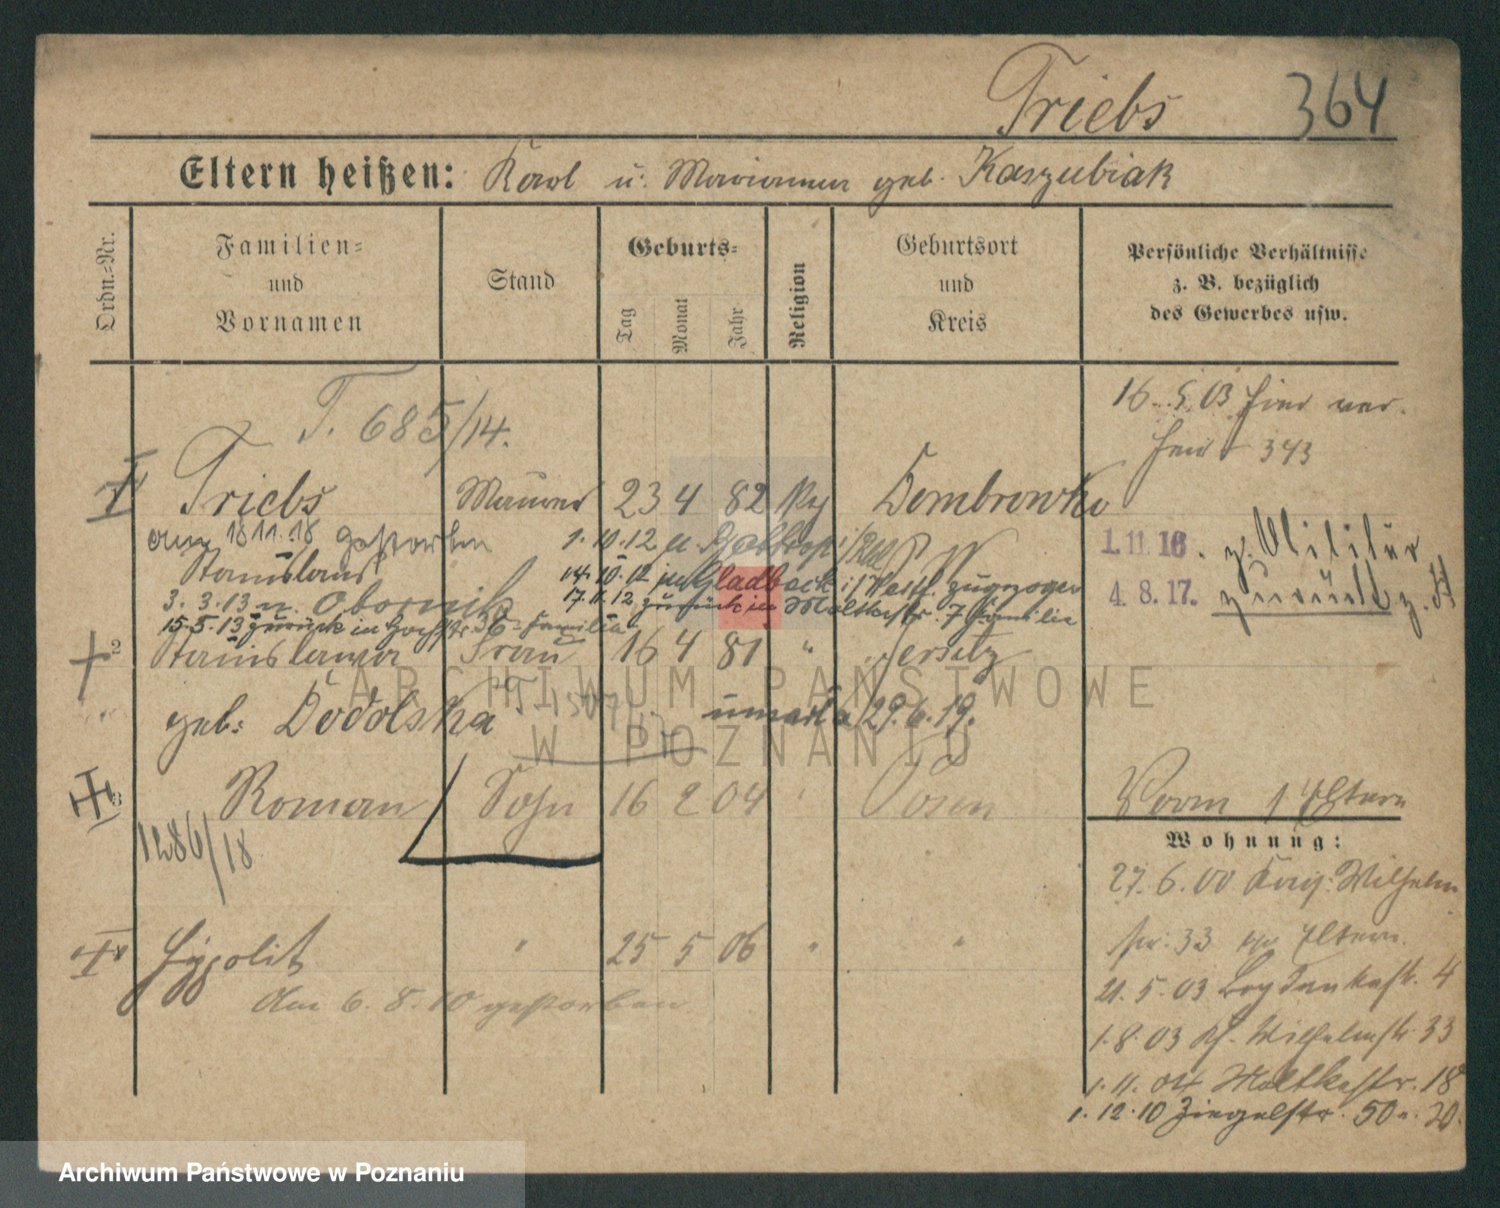 Triebs 364
Eltern heißen: Karl u. Marianna geb. Kaszubiak
Ordn.=Nr.
Familien=
und
Vornamen
Stand
Geburts=
Tag
Monat
Jahr
Religion
Geburtsort
und
Kreis
Persönliche Verhältnisse
z. B. bezüglich
des Gewerbes usw.
16.5.03 hier ver-
heir. 343
T. 685/14.
Triebs Maurer 23 4 82 Dombrowko
am 18.11.18 gestorben
Stanislaus
1.10.12 n.
14.10.12 in Gladbeck i/Westf. zugezogen
17.11.12 zurück in Moltkestr. 7 Familie
3.3.13 n. Obornik
15.5.13 zurück in Familie
1.11.16. z. Militär
4.8.17. zurück z.
2 Stanislawa Frau 16 4 81 " Jersitz
geb: Dodolska umarła 29.6.19.
3 Roman Sohn 16 2 04 Posen
1286/18
Vorm 1 Eltern
Hypolit " 25 5 06 " "
Am 6.8.10 gestorben
Wohnung:
27.6.00 Wilhelm
str. 33 Eltern.
21.5.03 Bogdankastr. 4
1.8.03 Wilhelmstr. 33
1.11.04 Moltkestr. 18
1.12.10 Ziegelstr. 50 n. 20.
ARCHIWUM PAŃSTWOWE
W POZNANIU
Archiwum Państwowe w Poznaniu